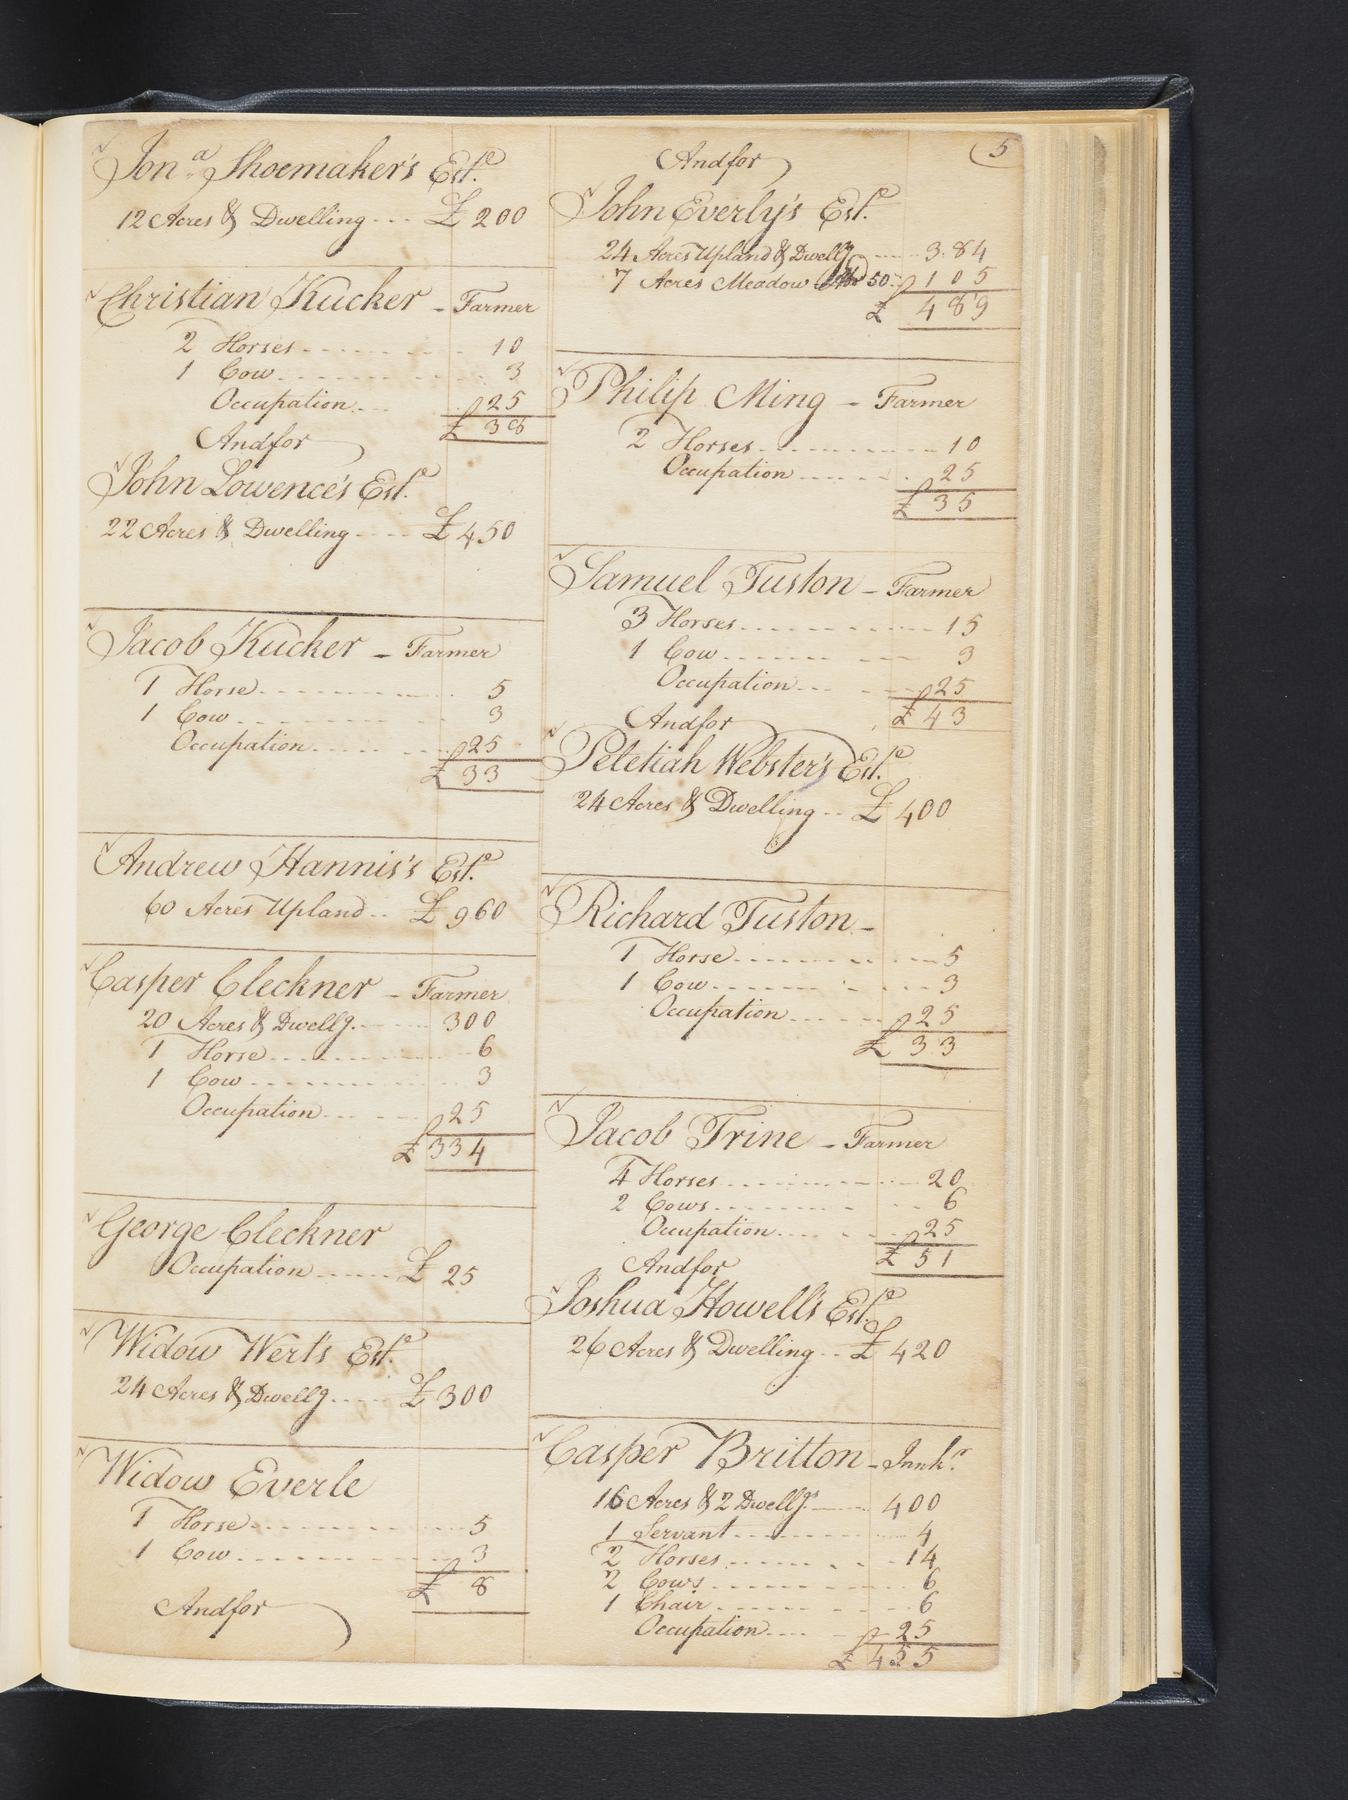 Jon.a Shoemaker's Est.e
12 Acres & Dwelling £ 200
Christian Kucker - Farmer
2 Horses 10
1 Cow 3
Occupation 25
£ 38
And for
John Lowence's Est.e
22 Acres & Dwelling £ 450
Jacob Kucker - Farmer
1 Horse 5
1 Cow 3
Occupation 25
£ 33
Andrew Hannis's Est.e
60 Acres Upland £ 960
Casper Cleckner - Farmer
20 Acres & Dwellg. 300
1 Horse 6
1 Cow 3
Occupation 25
£ 334
George Cleckner
Occupation £ 25
Widow Wert's Est.e
24 Acres & Dwellg £ 300
Widow Everle
1 Horse 5
1 Cow 3
£ 8
And for
5
And for
John Everly's Est.e
24 Acres Upland & Dwellg 384
7 Acres Meadow 50 105
£ 489
Philip Ming - Farmer
2 Horses 10
Occupation 25
£ 35
Samuel Tuston - Farmer
3 Horses 15
1 Cow 3
Occupation 25
£ 43
And for
Peletiah Webster's Est.e
24 Acres & Dwelling £ 400
Richard Tuston -
1 Horse 5
1 Cow 3
Occupation 25
£ 33
Jacob Trine - Farmer
4 Horses 20
2 Cows 6
Occupation 25
£ 51
And for
Joshua Howell's Est.e
26 Acres & Dwelling £ 420
Casper Britton - Innk.r
16 Acres & 2 Dwellgs 400
1 Servant 4
2 Horses 14
2 Cows 6
1 Chair 6
Occupation 25
£ 455